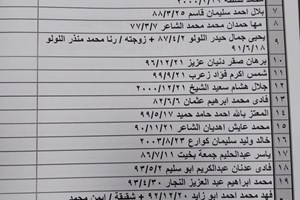 ٧ بلال احمد سليمان قاسم ٨٨/٣/٢٥
٨ مها حمدان محمد محمد الشاعر ٧٧/٣/٧
٩ يحيى جمال حيدر اللولو ٨٧/٤/٢ + زوجته / رنا محمد منذر اللولو
٩١/٦/١٨
١٠ برهان صقر دنيان عزيز ٩٦/١٢/٢١
١١ شمس اكرم فؤاد زعرب ٩٩/٩/١
١٢ جلال هشام سعيد الشيخ ٢٠٠٠/١٢/٢١
١٣ فادى محمد ابراهيم عثمان ٨٢/٦/٦
١٤ المعتز بالله احمد حامد حميد ٩٩/٥/١٧
١٥ محمد عايش اهديان الشاعر ٩٠/١٢/٢١
١٦ خالد وليد سليمان كوارع ٢٠٠٣/٨/٢٣
١٧ ياسر عبدالحليم جمعة بخيت ٨٦/٧/١١
١٨ فادى عدنان عبدالكريم ابو سليم ٩٢/٥/٩
١٩ محمد ابراهيم عبد العزيز النجار ٩٣/٤/٣٠
فهد محمد احمد ابو زايد ٩٢/١٢/٢٠ + شقيقة / ايمن محمد